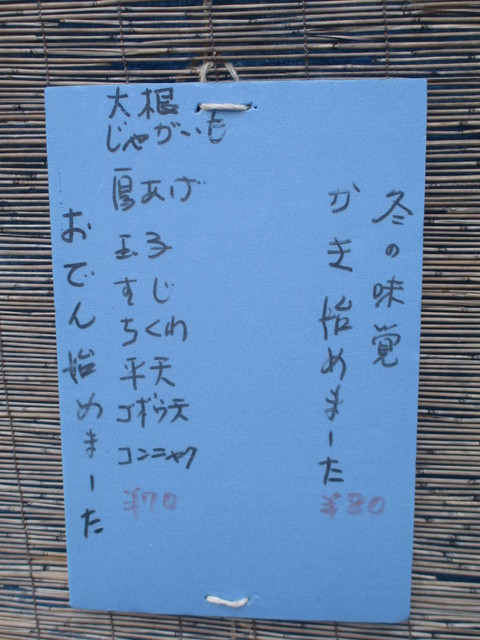 冬の味覚
かき始めました
¥80
大根
じゃがいも
厚あげ
玉子
すじ
ちくわ
平天
ゴボウ天
コンニャク
¥70
おでん始めました